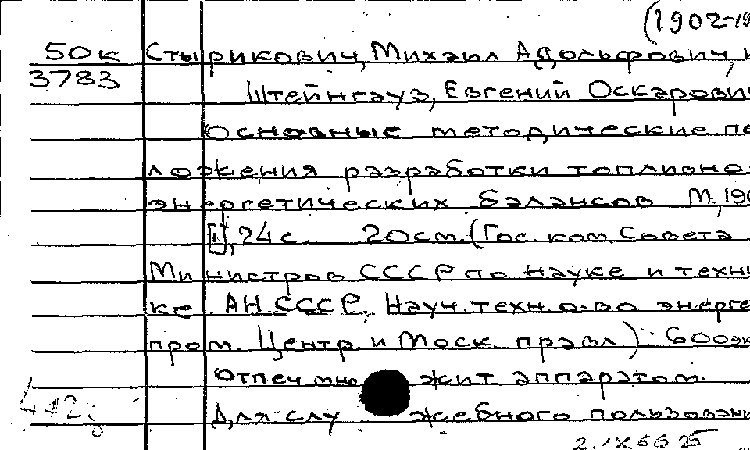 (1902-19
50к Стырикович, Михаил Адольфович, и
3783
Штейнгауз, Евгений Оскарович
Основные методические по
ложения разработки топливно-
энергетических балансов М, 196
[1], 24 с. 20см. (Гос. ком. Совета
Министров СССР по науке и техни
ке АН СССР. Науч.-техн. о-во энерге
пром. Центр и Моск. правл) 600эк
Отпеч мно жит аппаратом.
Для слу жебного пользовани